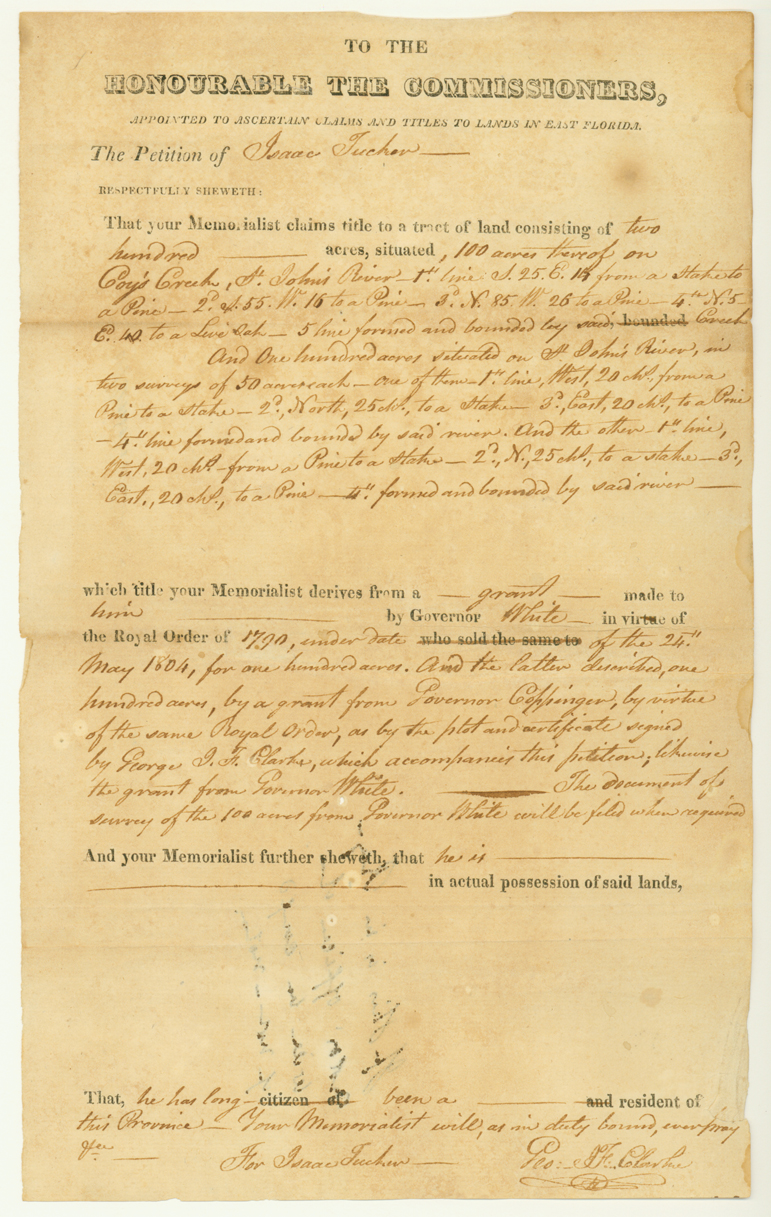 TO THE
HONOURABLE THE COMMISSIONERS,
APPOINTED TO ASCERTAIN CLAIMS AND TITLES TO LANDS IN EAST FLORIDA.
The Petition of Isaac Tucker —
RESPECTFULLY SHEWETH:
That your Memorialist claims title to a tract of land consisting of two
hundred — acres, situated, 100 acres thereof on
Coy's Creek, St. John's River — 1st. line S. 25. E. 14 from a Stake to
a Pine — 2d. S. 55. W. 16 to a Pine — 3d. N. 85. W. 26 to a Pine — 4th. N. 5
E. 40. to a Live Oak — 5 line formed and bounded by said, bounded Creek
And One hundred acres situated on St. John's River, in
two surveys of 50 acres each — one of them — 1st. line, West, 20 chs., from a
Pine to a Stake — 2d., North, 25 chs., to a Stake — 3d., East, 20 chs., to a Pine
— 4th. line formed and bounded by said river. And the other — 1st. line,
West, 20 chs. from a Pine to a Stake — 2d., N., 25 chs., to a stake — 3d.,
East., 20 chs., to a Pine — 4th. formed and bounded by said river —
which title your Memorialist derives from a — grant — made to
him — by Governor White — in virtue of
the Royal Order of 1790, under date who sold the same to of the 24th.
May 1804, for one hundred acres. And the latter described, one
hundred acres, by a grant from Governor Coppinger, by virtue
of the same Royal Order, as by the plot and certificate signed
by George J. F. Clarke, which accompanies this petition; likewise
the grant from Governor White. — The document of
survey of the 100 acres from Governor White will be filed when required
And your Memorialist further sheweth, that he is —
— in actual possession of said lands,
That, he has long citizen of been a — and resident of
this Province — Your Memorialist will, as in duty bound, ever pray
&ca. —
For Isaac Tucker — Geo: J. F. Clarke